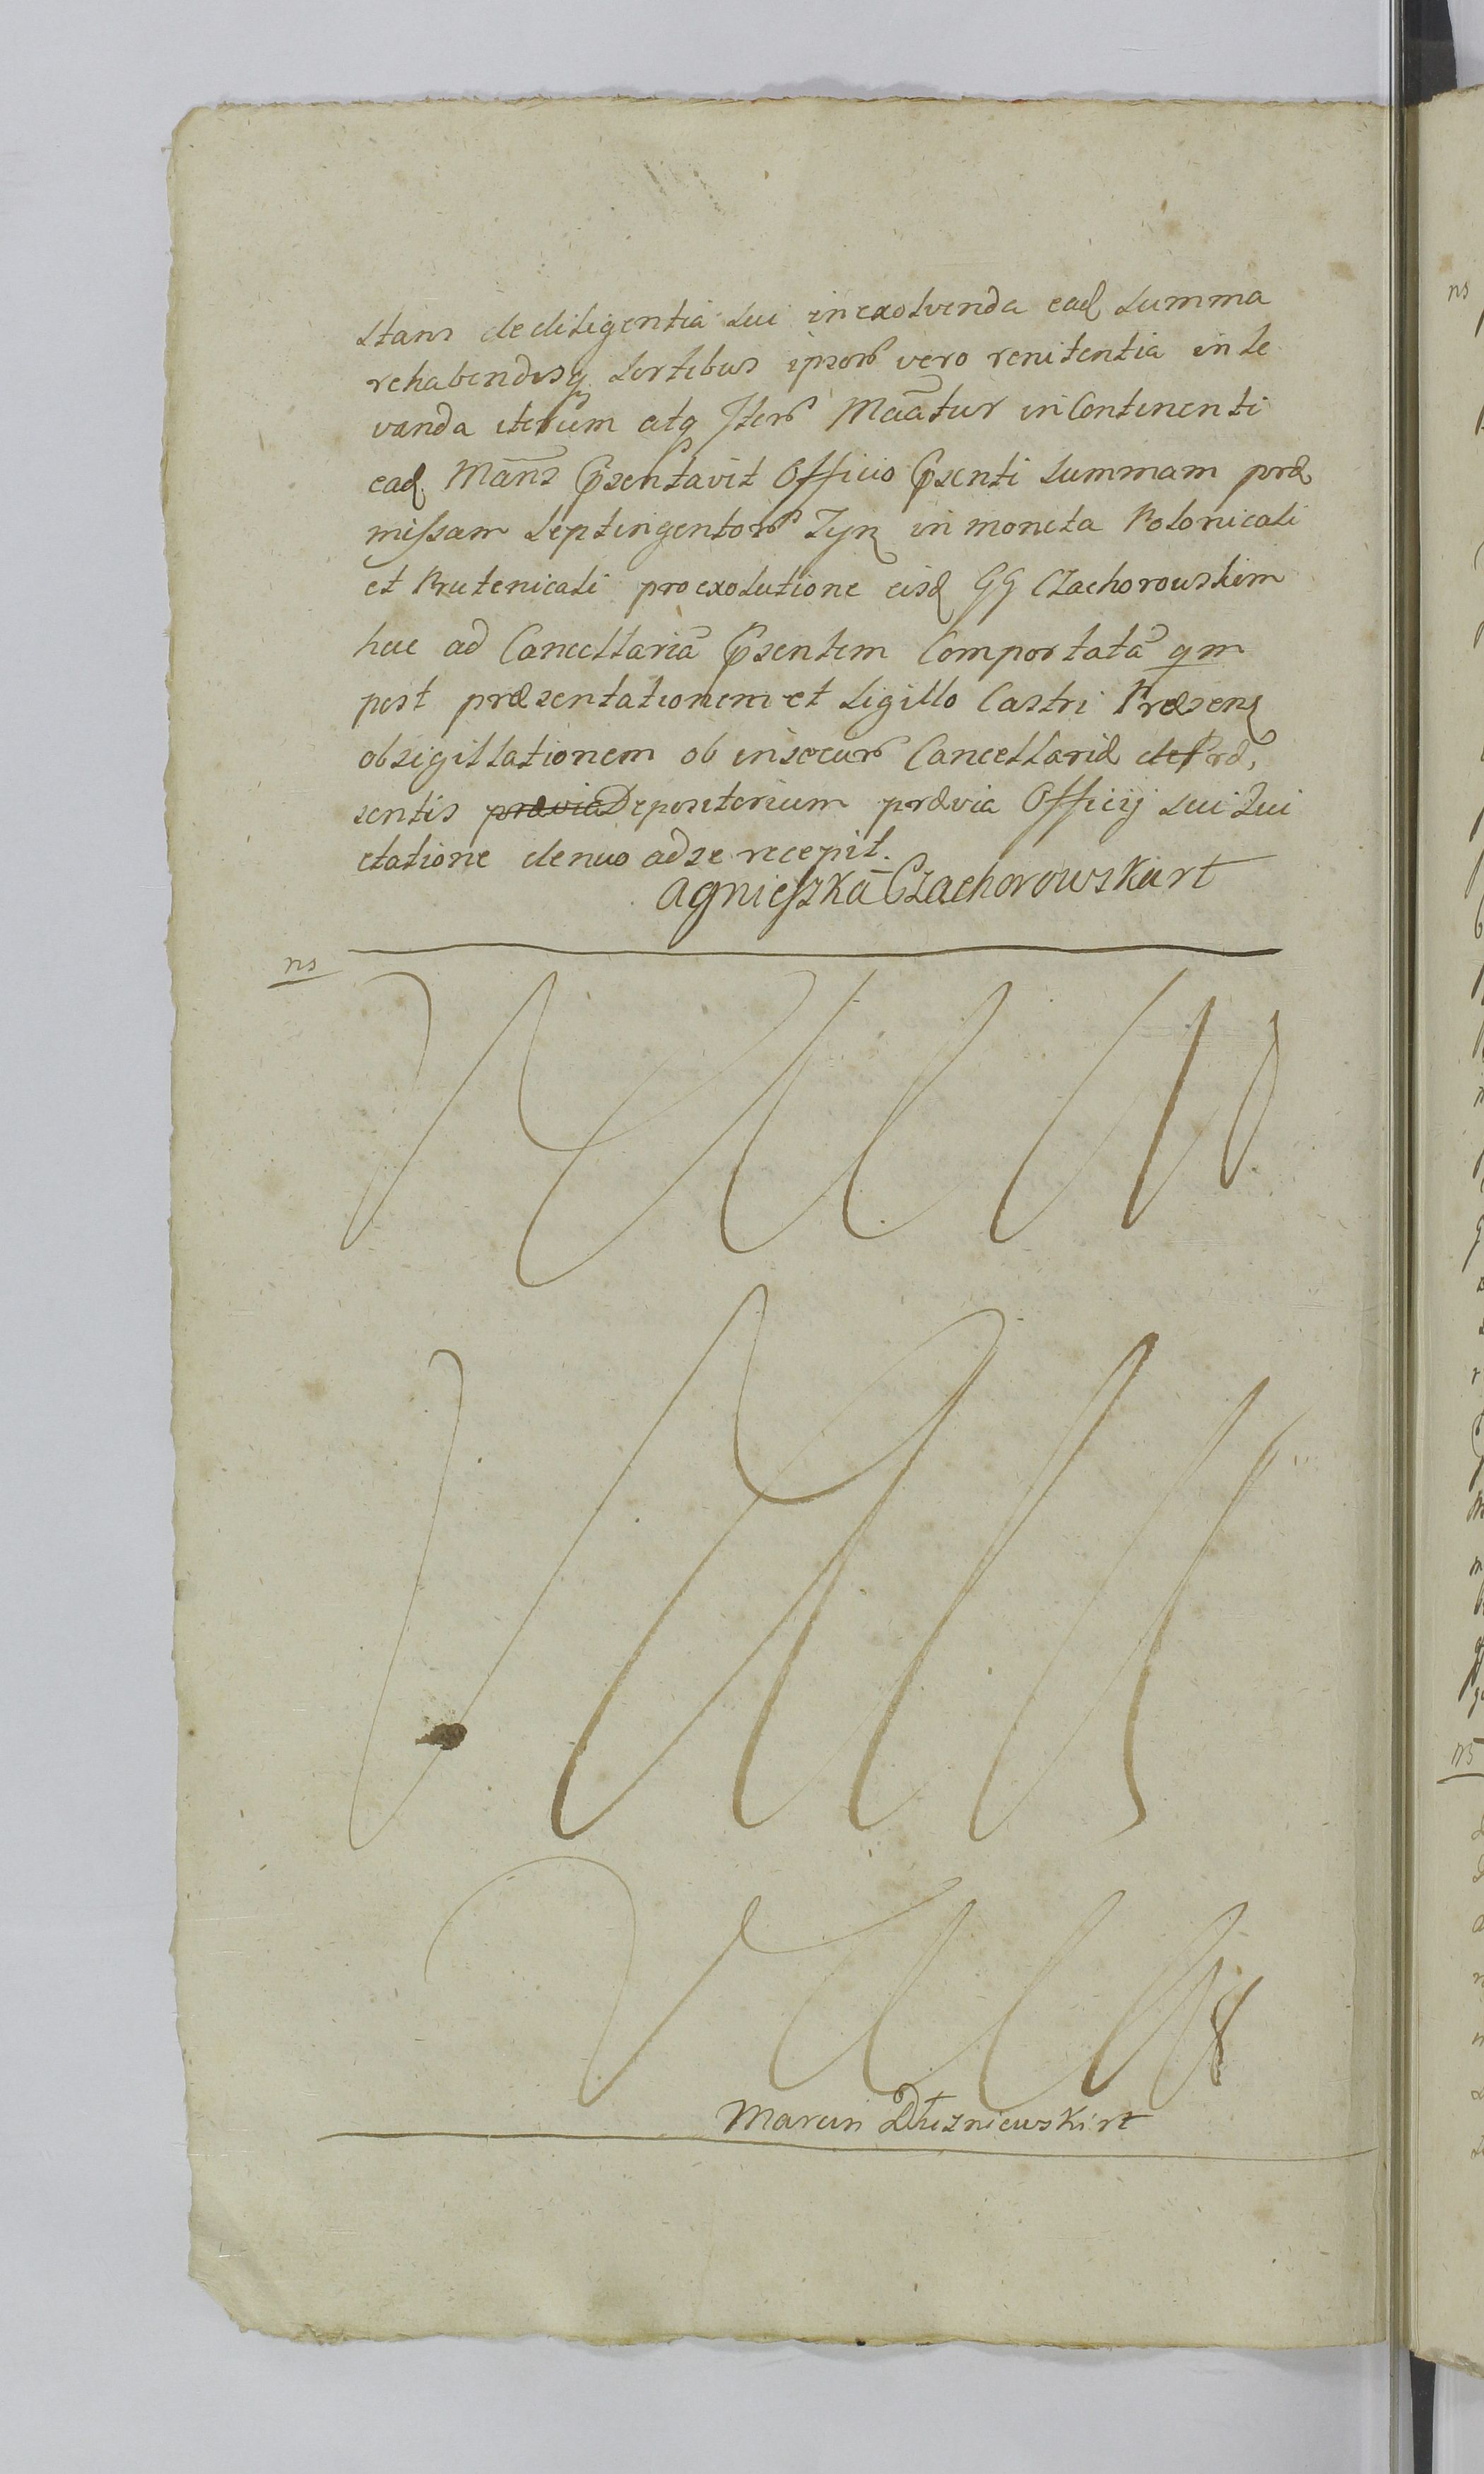 stans de diligentia sui in exolvenda ead summa
rehabendisq sortibus ipsor vero renitentia in le
vanda iterum atq Iter Maātur in Continenti
ead Māns Psentavit Officio Psenti summam præ
missam septingentor Tyn in moneta Polonicali
et Prutenicali pro exolutione eisd GG Czachorowskim
huc ad Cancellariā Psentem Comportatā qm
post præsentationem et sigillo Castri Præsen
obsigillationem ob insecur Cancellariæ Præ,
sentis prævia Depositorium prævia Officij sui Qui
etatione denuo ad se recepit.
Agnieszka Czachorowska rt
ns
Marcin Dłuzniewski rt